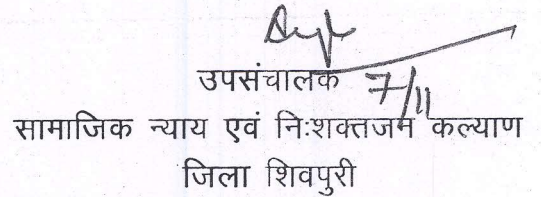 उपसंचालक 7/11
सामाजिक न्याय एवं निःशक्तजन कल्याण
जिला शिवपुरी